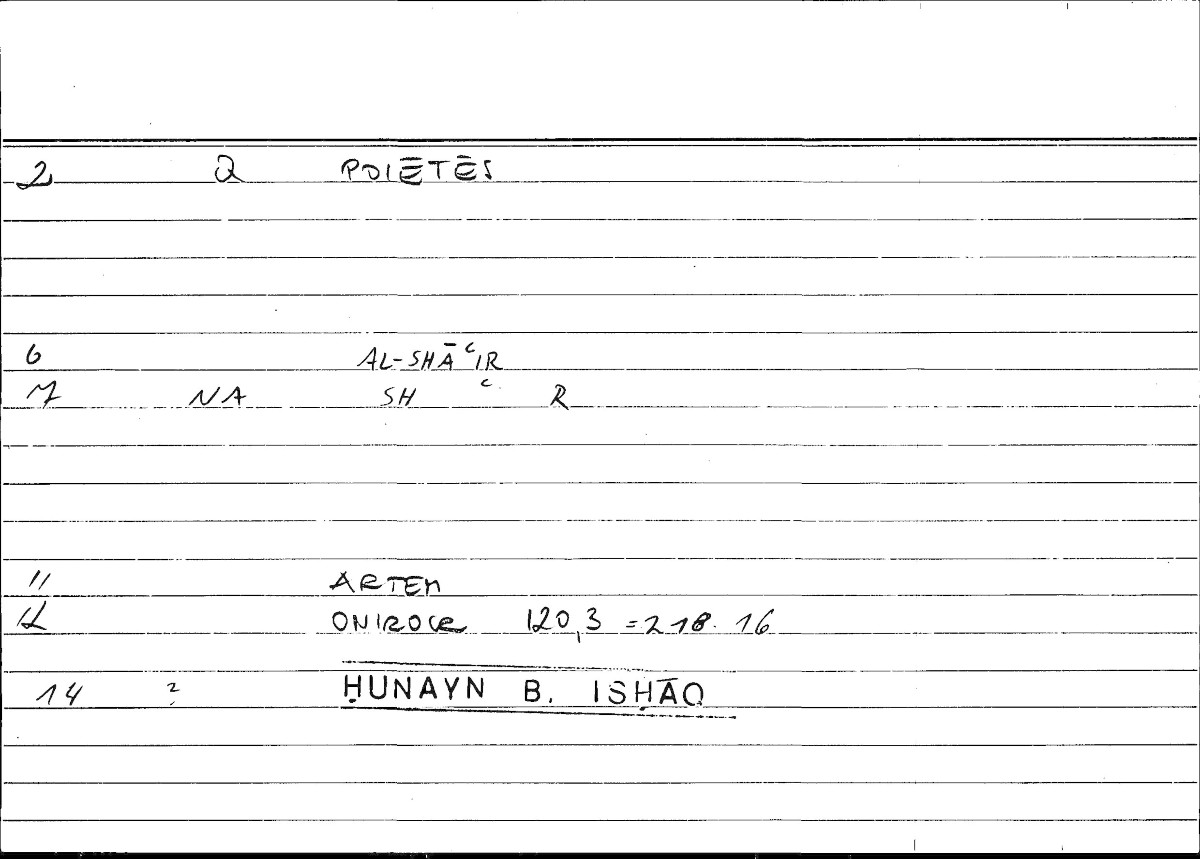 2 Q POIĒTĒS
6 AL-SHĀʿIR
7 NA SH ʿ R
11 ARTEM
12 ONIROCR 120,3 = 218.16
14 ? ḤUNAYN B. ISḤĀQ